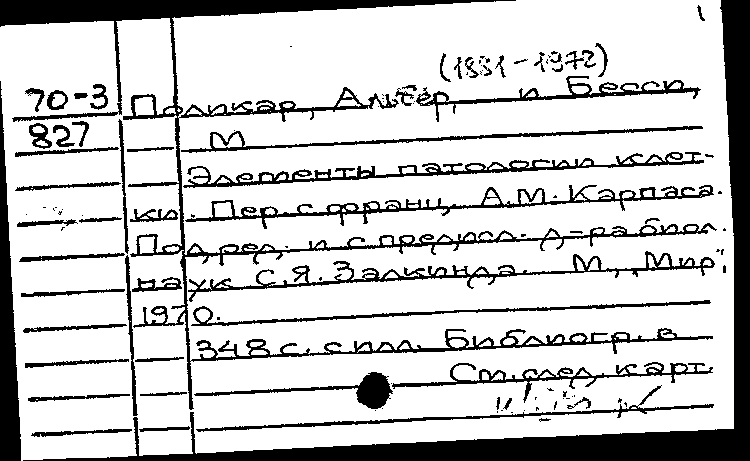 1
(1881-1972)
70-3 Поликар, Альбер, и Бесси,
827 М
Элементы патологии клет-
ки. Пер. с франц. А.М. Карпаса.
Под ред. и с предисл. д-ра биол.
наук С.Я. Залкинда. М., „Мир",
1970.
348 с. с илл. Библиогр. в
См. след. карт.